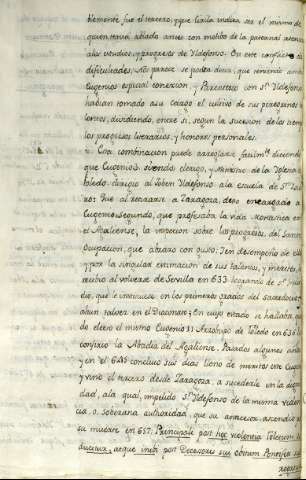 blemente fue el tercero, pues Loaisa indica ser el mismo de
quien trava ablado antes con motivo de la paternal atencion
a los estudios, y progresos de Yldefonso. En este conflicto de
dificultades, No parece se podra decir, que teniendo am
Eugenios especial conexion, y Parentesco con Sn. Yldefonso
habian tomado a su cargo el cultivo de sus prodigiosos ta
lentos, dividiendo entre si, segun la sucesion de los tiem
los progresos literarios, y honores personales.
Esta combinacion puede arreglarse facilmte. diciendo
que Eugenio 3. siendo clerigo, y Ministro de la Yglesia
toledo dirigio al joben Yldefonso a la escuela de Sn. Ysi
ro: Que al retirarse a Zaragoza, dejo encargado a
Eugenio segundo, que profesaba la vida Monastica en
el Agaliense, la inspeccion sobre los progresos del Santo
Ocupacion, que abrazo con gusto: Y en desempeño de ella
y por la singular estimacion de sus talentos, y meritos,
recibio al volverse de Sevilla en 633 logrando de Sn.
dio, que le instruiese en los primeros grados del Sacerdocio,
a un talvez en el Diaconato; En cuyo estado se hallaba
do electo el mismo Eugenio II Arzobispo de Toledo en 636 le
confirio la Abadia del Agaliense. Pasados algunos años
y en el 645 concluio sus dias lleno de meritos este Eugenio
y vino el tercero desde Zaragoza, a sucederle en la dig
dad, a la qual, impelido Sn. Yldefonso de la misma violen
cia, o soberana authoridad, que su antecesor, ascendio
su muerte en 657. Principali post hec violentia Toletum
ducitur, atque inibi post Decessoris sui obitum Pontifex su